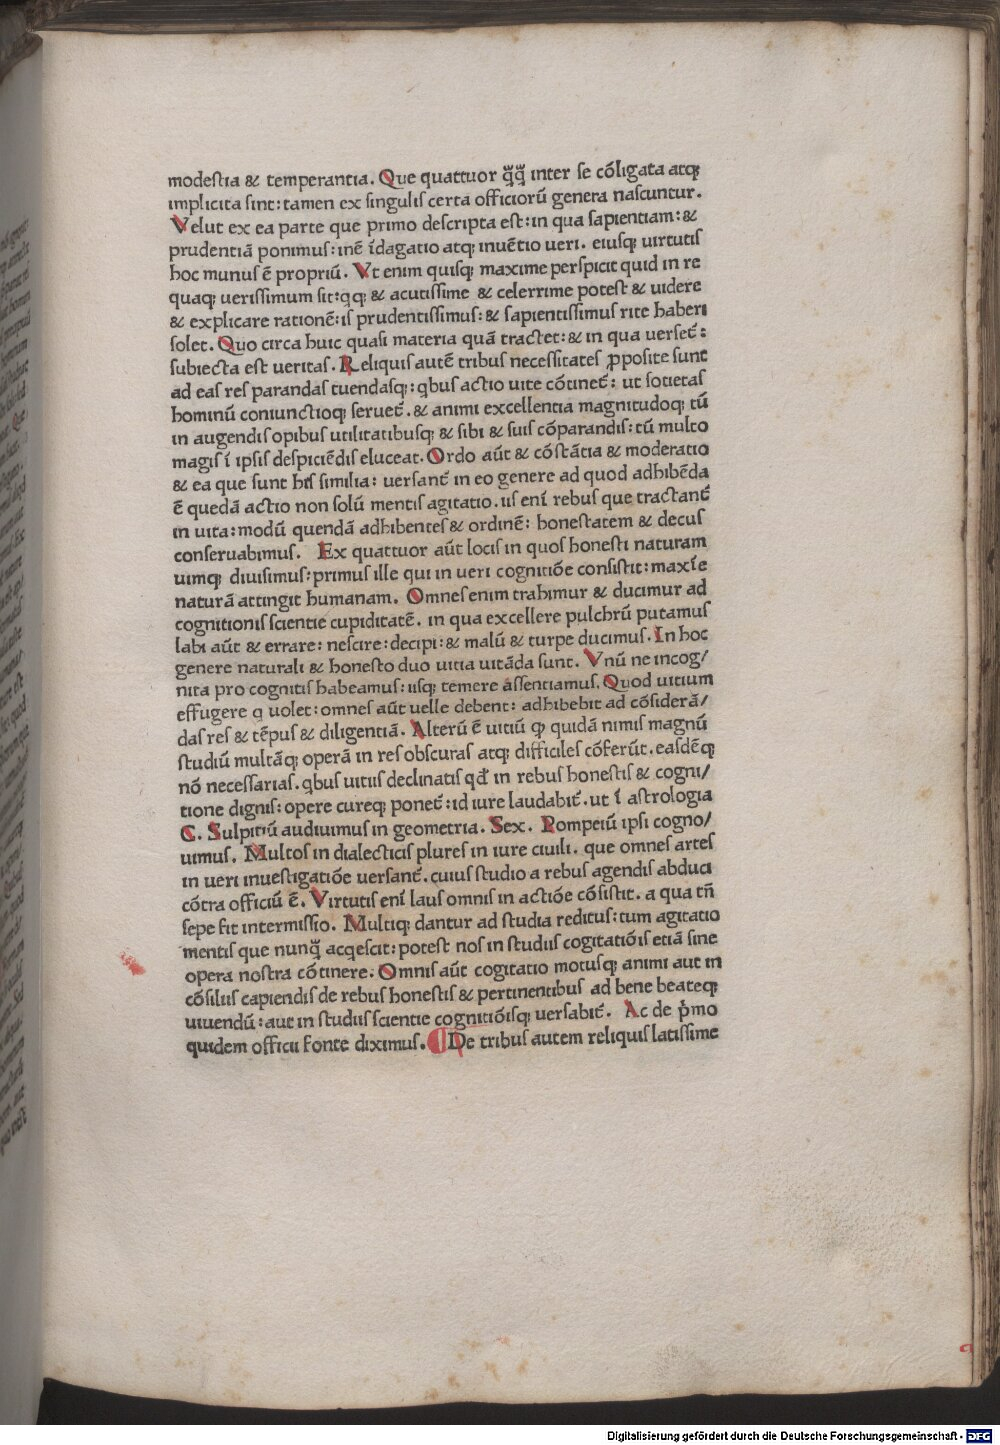 modestia & temperantia. Que quattuor qq̃ inter se cõligata atqꝫ
implicita sint: tamen ex singulis certa officiorũ genera nascuntur.
Velut ex ea parte que primo descripta est: in qua sapientiam: &
prudentiã ponimus: inẽ ĩdagatio atqꝫ inuẽtio ueri. eiusqꝫ uirtutis
hoc munus ẽ propriũ. Vt enim quisqꝫ maxime perspicit quid in re
quaqꝫ uerissimum sit: qqꝫ & acutissime & celerrime potest & uidere
& explicare rationẽ: is prudentissimus: & sapientissimus rite haberi
solet. Quo circa huic quasi materia quã tractet: & in qua uerset̃:
subiecta est ueritas. Reliquis autẽ tribus necessitates ꝓposite sunt
ad eas res parandas tuendasqꝫ: qbus actio uite cõtinet̃: ut societas
hominũ coniunctioqꝫ seruet̃. & animi excellentia magnitudoqꝫ tũ
in augendis opibus utilitatibusqꝫ & sibi & suis cõparandis: tũ multo
magis ĩ ipsis despiciẽdis eluceat. Ordo aũt & cõstãtia & moderatio
& ea que sunt his similia: uersant̃ in eo genere ad quod adhibẽda
ẽ quedã actio non solũ mentis agitatio. iis enĩ rebus que tractant̃
in uita: modũ quendã adhibentes & ordinẽ: honestatem & decus
conseruabimus. Ex quattuor aũt locis in quos honesti naturam
uimqꝫ diuisimus: primus ille qui in ueri cognitiõe consistit: maxĩe
naturã attingit humanam. Omnes enim trahimur & ducimur ad
cognitionis scientie cupiditatẽ. in qua excellere pulchrũ putamus
labi aũt & errare: nescire: decipi: & malũ & turpe ducimus. In hoc
genere naturali & honesto duo uitia uitãda sunt. Vnũ ne incog/
nita pro cognitis habeamus: iisqꝫ temere assentiamus. Quod uitium
effugere q uolet: omnes aũt uelle debent: adhibebit ad cõsiderã/
das res & tẽpus & diligentiã. Alterũ ẽ uitiũ ꝙ quidã nimis magnũ
studiũ multãqꝫ operã in res obscuras atqꝫ difficiles cõferũt. easdẽqꝫ
nõ necessarias. qbus uitiis declinatis qđ in rebus honestis & cogni/
tione dignis: opere cureqꝫ ponet̃: id iure laudabit̃. ut ĩ astrologia
C. Sulpitiũ audiuimus in geometria. Sex. Pompeiũ ipsi cogno/
uimus. Multos in dialecticis plures in iure ciuili. que omnes artes
in ueri inuestigatiõe uersant̃. cuius studio a rebus agendis abduci
cõtra officiũ ẽ. Virtutis enĩ laus omnis in actiõe cõsistit. a qua tñ
sepe fit intermissio. Multiqꝫ dantur ad studia reditus: tum agitatio
mentis que nunq̃ acqescit: potest nos in studiis cogitatiõis etiã sine
opera nostra cõtinere. Omnis aũt cogitatio motusqꝫ animi aut in
cõsiliis capiendis de rebus honestis & pertinentibus ad bene beateqꝫ
uiuendũ: aut in studiis scientie cognitiõisqꝫ uersabit̃. Ac de p̃mo
quidem officii fonte diximus. ¶ De tribus autem reliquis latissime
Digitalisierung gefördert durch die Deutsche Forschungsgemeinschaft - DFG